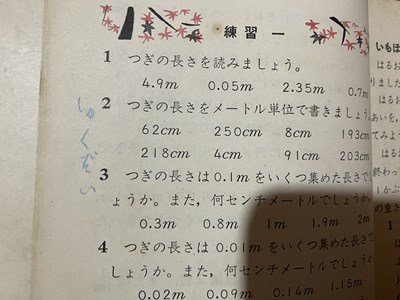 練習 一
1 つぎの長さを読みましょう。
4.9m 0.05m 2.35m 0.7m
2 つぎの長さをメートル単位で書きましょう
62cm 250cm 8cm 193cm
218cm 4cm 91cm 203cm
3 つぎの長さは 0.1m をいくつ集めた長さで
ょうか。また，何センチメートルでしょうか。
0.3m 0.8m 1m 1.9m 2m
4 つぎの長さは 0.01m をいくつ集めた長さで
しょうか。また，何センチメートルでしょうか
0.02m 0.09m 0.14m 1.15m
しゅくだい
いもほ
はるお
りました
あいを，
てみよう
はるお
終わっ
1かぶ
の重さ
1